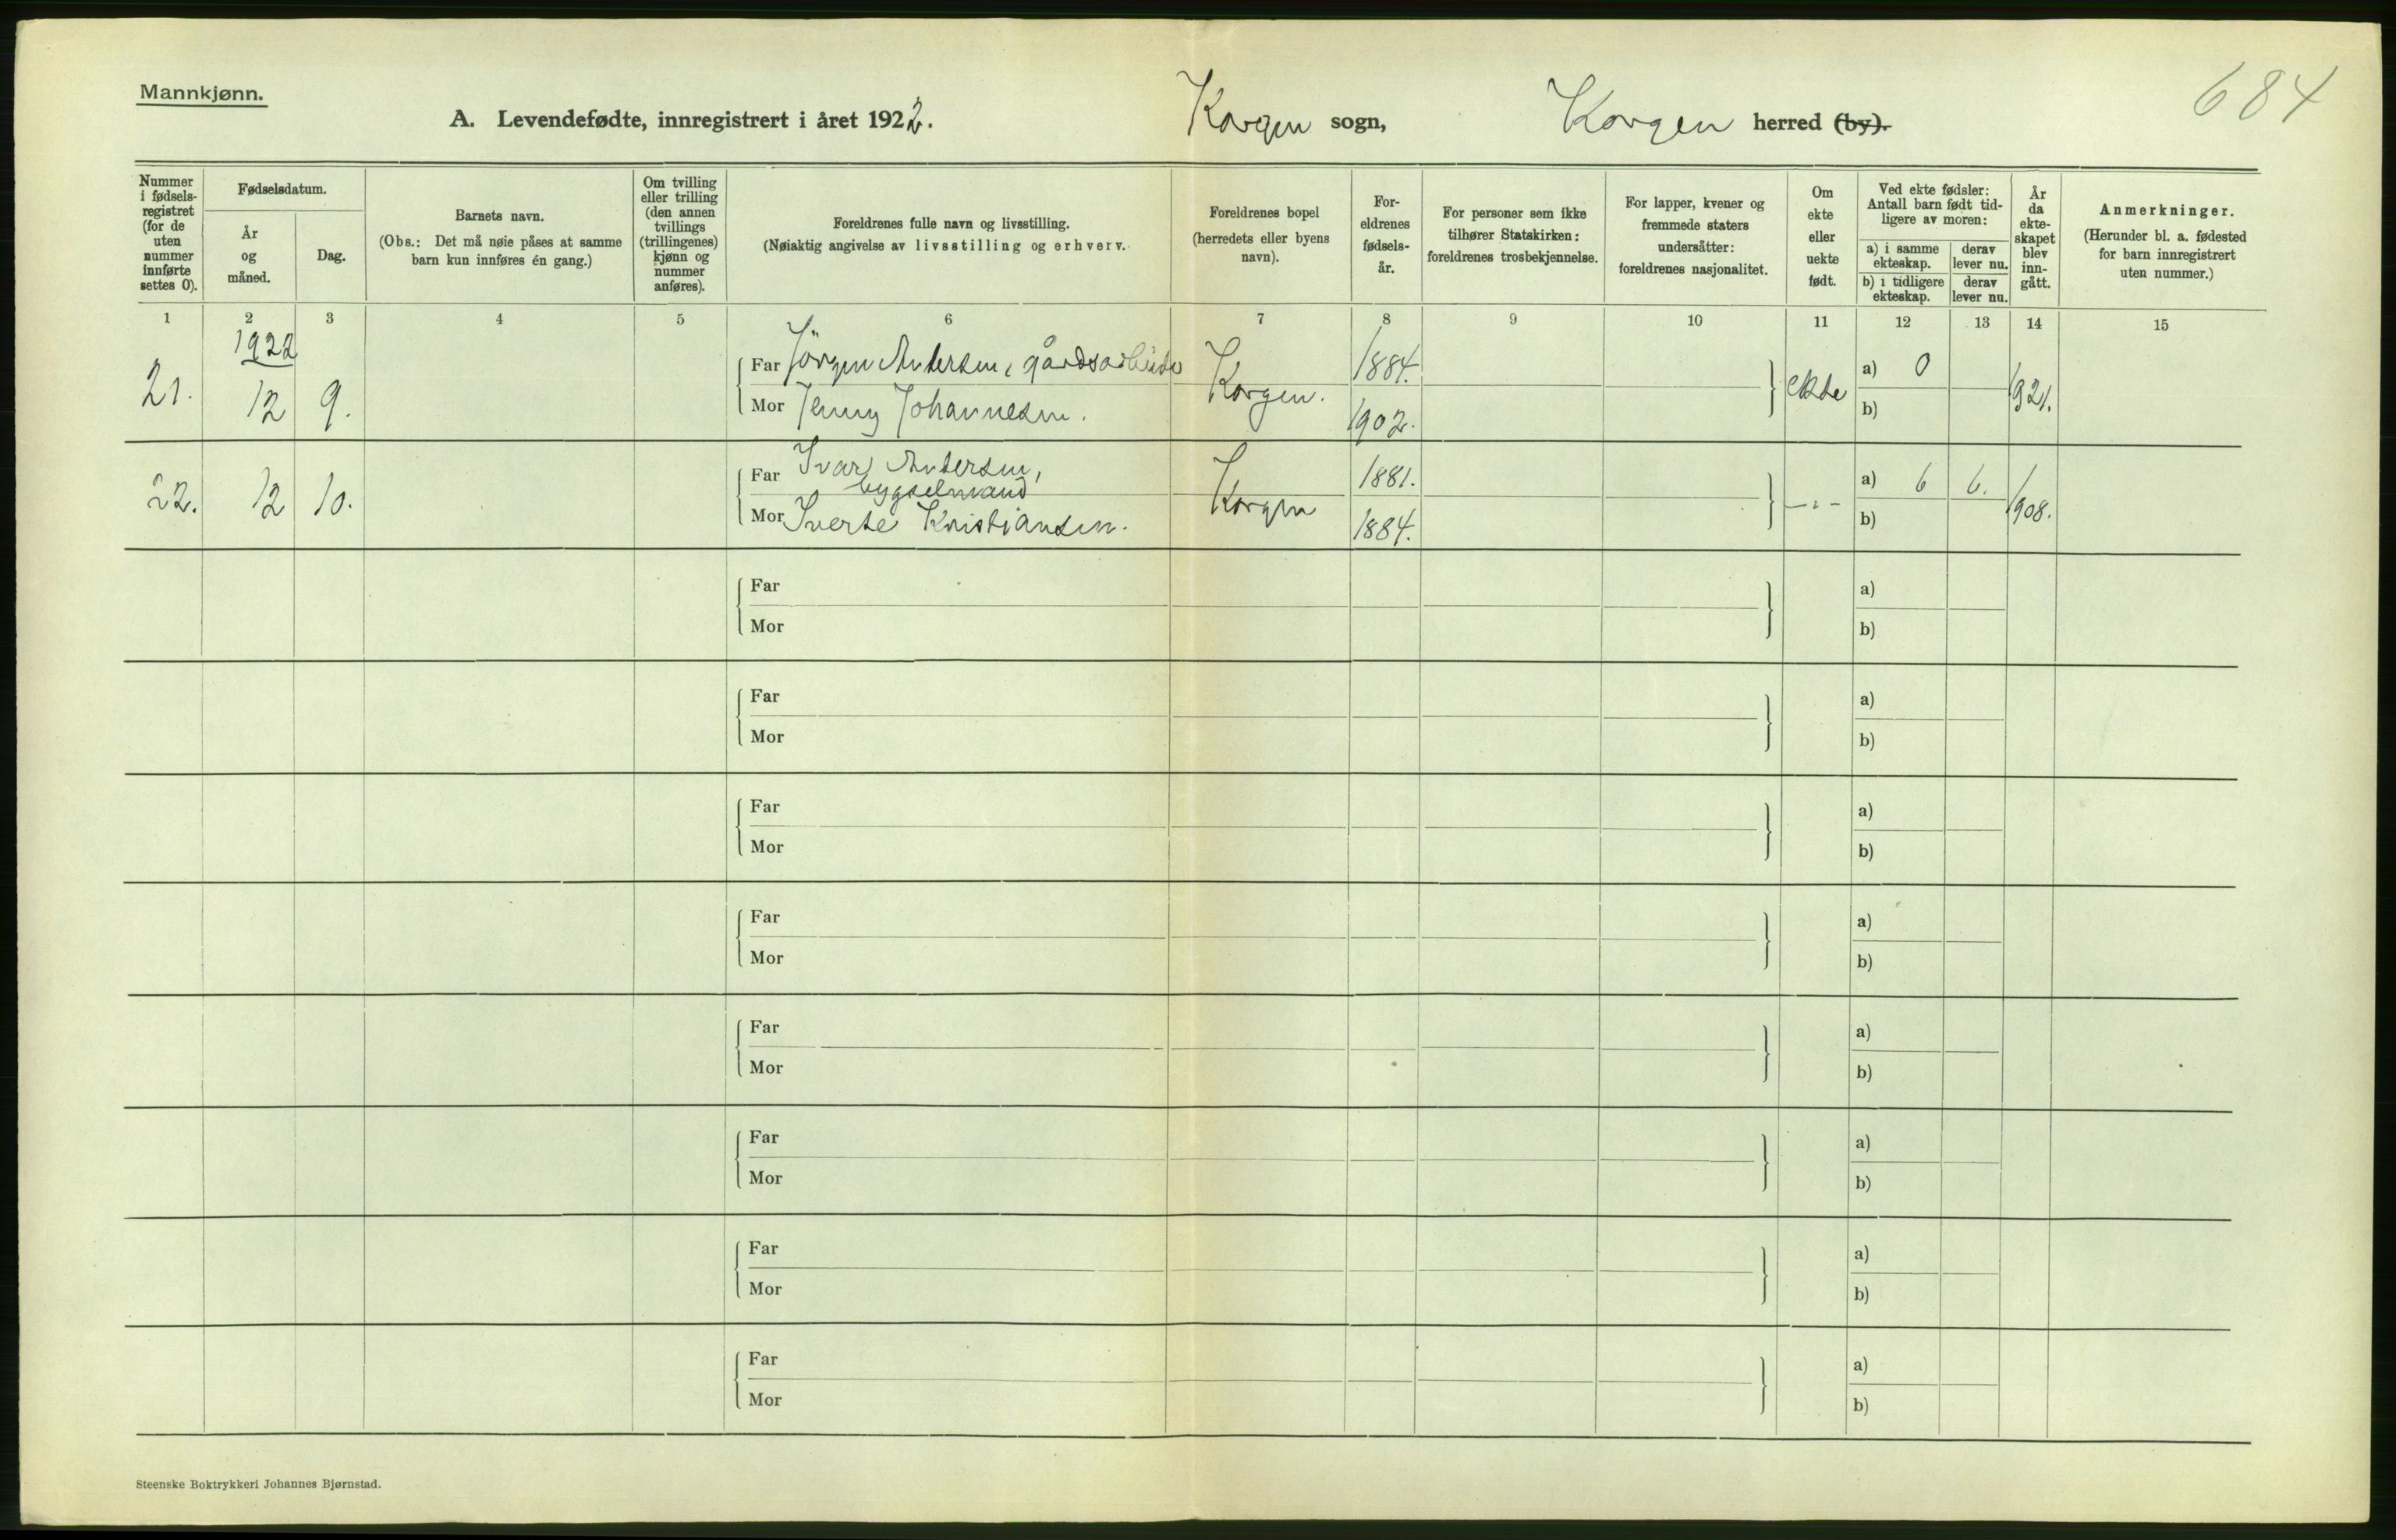 Mannkjønn.
684
A. Levendefødte, innregistrert i året 1922. Korgen sogn, Korgen herred (by).
Nummer i fødselsregistret (for de uten nummer innførte settes 0).
Fødselsdatum.
År og måned.
Dag.
Barnets navn.
(Obs.: Det må nøie påses at samme barn kun innføres én gang.)
Om tvilling eller trilling (den annen tvillings (trillingenes) kjønn og nummer anføres).
Foreldrenes fulle navn og livsstilling.
(Nøiaktig angivelse av livsstilling og erhverv.
Foreldrenes bopel (herredets eller byens navn).
Foreldrenes fødselsår.
For personer sem ikke tilhører Statskirken: foreldrenes trosbekjennelse.
For lapper, kvener og fremmede staters undersåtter: foreldrenes nasjonalitet.
Om ekte eller uekte født.
Ved ekte fødsler: Antall barn født tidligere av moren:
a) i samme ekteskap.
derav lever nu.
b) i tidligere ekteskap.
derav lever nu.
År da ekteskapet blev inngått.
Anmerkninger.
(Herunder bl. a. fødested for barn innregistrert uten nummer.)
1 2 3 4 5 6 7 8 9 10 11 12 13 14 15
1922
21. 12 9. Far Jörgen Antersen, gårdsarbeider Korgen. 1884. ekte a) 0 1921.
Mor Jenny Johannesen. 1902. b)
22. 12 10. Far Ivar Antersen, bygselmand Korgen 1881. -"- a) 6 6. 1908.
Mor Sverte Kristiansen. 1884. b)
Far a)
Mor b)
Far a)
Mor b)
Far a)
Mor b)
Far a)
Mor b)
Far a)
Mor b)
Far a)
Mor b)
Far a)
Mor b)
Far a)
Mor b)
Steenske Boktrykkeri Johannes Bjørnstad.